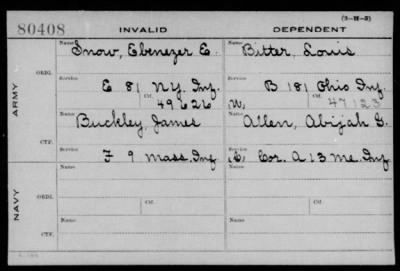 80408 INVALID DEPENDENT (3-H-3)
Name Snow, Ebenezer E. Name Bitter, Louis
ARMY
ORIG. Service E 81 N.Y. Inf. Service B 181 Ohio Inf.
Ctf. 49626 W. Ctf. 47123
Name Buckley, James Name Allen, Abijah G.
CTF. Service F 9 Mass. Inf. Service Cor. A 13 Me. Inf.
NAVY
Name Name
ORIG. Service Service
Ctf. Ctf.
Name Name
CTF. Service Service